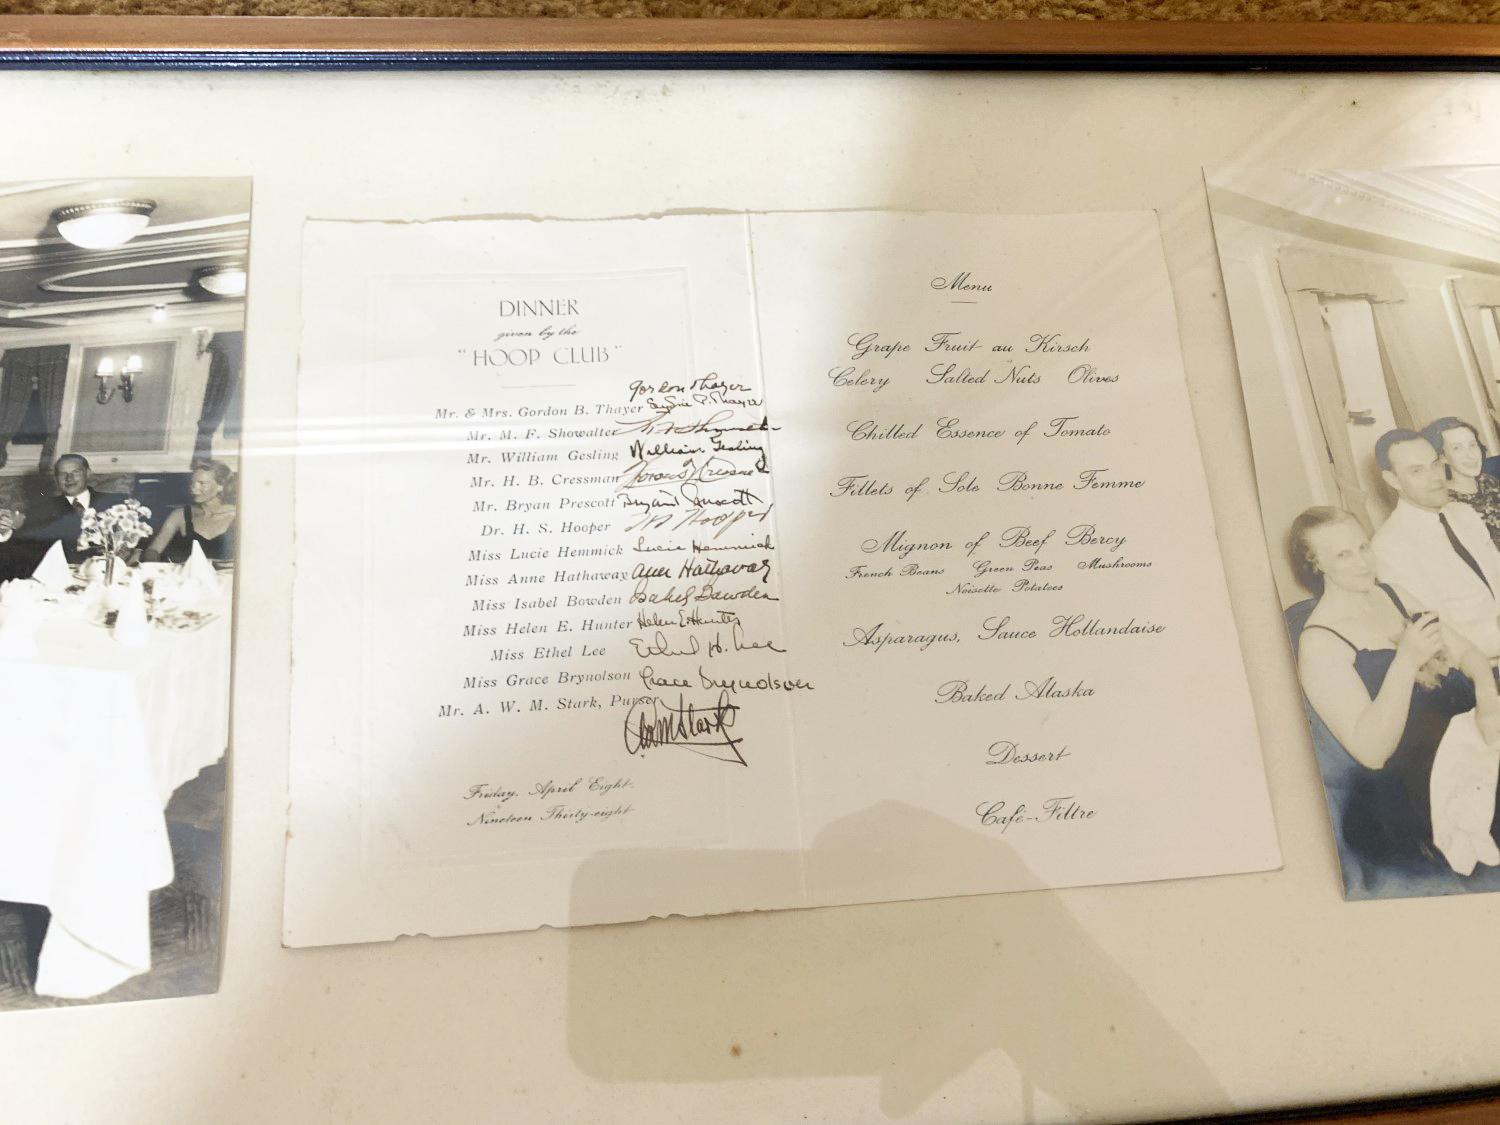 DINNER
given by the
"HOOP CLUB"
Gordon Thayer
Mr. & Mrs. Gordon B. Thayer P. Thayer
Mr. M. F. Showalter
Mr. William Gesling William Gesling
Mr. H. B. Cressman
Mr. Bryan Prescott Bryant Prescott
Dr. H. S. Hooper HS Hooper
Miss Lucie Hemmick Lucie Hemmick
Miss Anne Hathaway Anne Hathaway
Miss Isabel Bowden Isabel Bowden
Miss Helen E. Hunter Helen E. Hunter
Miss Ethel Lee Ethel H. Lee
Miss Grace Brynolson Grace Brynolson
Mr. A. W. M. Stark, Purser
AWM Stark
Friday, April Eight.
Nineteen Thirty-eight
Menu
Grape Fruit au Kirsch
Celery Salted Nuts Olives
Chilled Essence of Tomato
Fillets of Sole Bonne Femme
Mignon of Beef Bercy
French Beans Green Peas Mushrooms
Noisette Potatoes
Asparagus, Sauce Hollandaise
Baked Alaska
Dessert
Café-Filtre